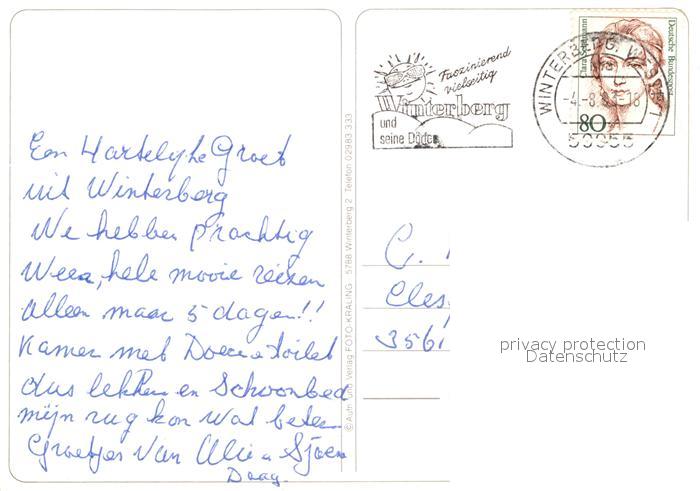 Een Hartelyke Groet
uit Winterberg
We hebben prachtig
Weer, hele mooie reizen
alleen maar 5 dagen!!
Kamer met Douce e toilet
dus lekker en Schoon bed
mijn rug kon wat beter
Groetjes Van Alie en Sjoen
Daag.
© Auth. und Verlag FOTO-KRALING 5788 Winterberg 2 Telefon 02983/333
Faszinierend
vielseitig
Winterberg
und
seine Dörfer
WINTERBERG, WESTF 1
4.-8. 18
59955
Clara Schumann
Deutsche Bundespost
80
C.
Cles
3561
privacy protection
Datenschutz